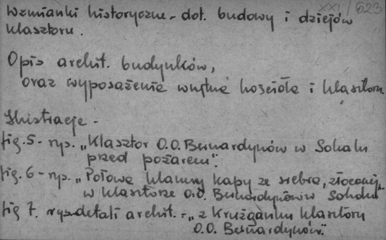 Wzmianki historyczne - dot. budowy i dziejów
klasztoru.
Opis archit. budynków,
oraz wyposażenie wnętrz kościoła i klasztoru
Ilustracje -
fig. 5 - rys. „Klasztor O.O. Bernardynów w Sokalu
przed pożarem".
fig. 6 - rys. „Połowa klamry kapy ze srebra, złoconej,
w klasztorze O.O. Bernardynów w Sokalu
fig 7. rys. detali archit. - „z krużganku klasztoru
O.O. Bernardynów".